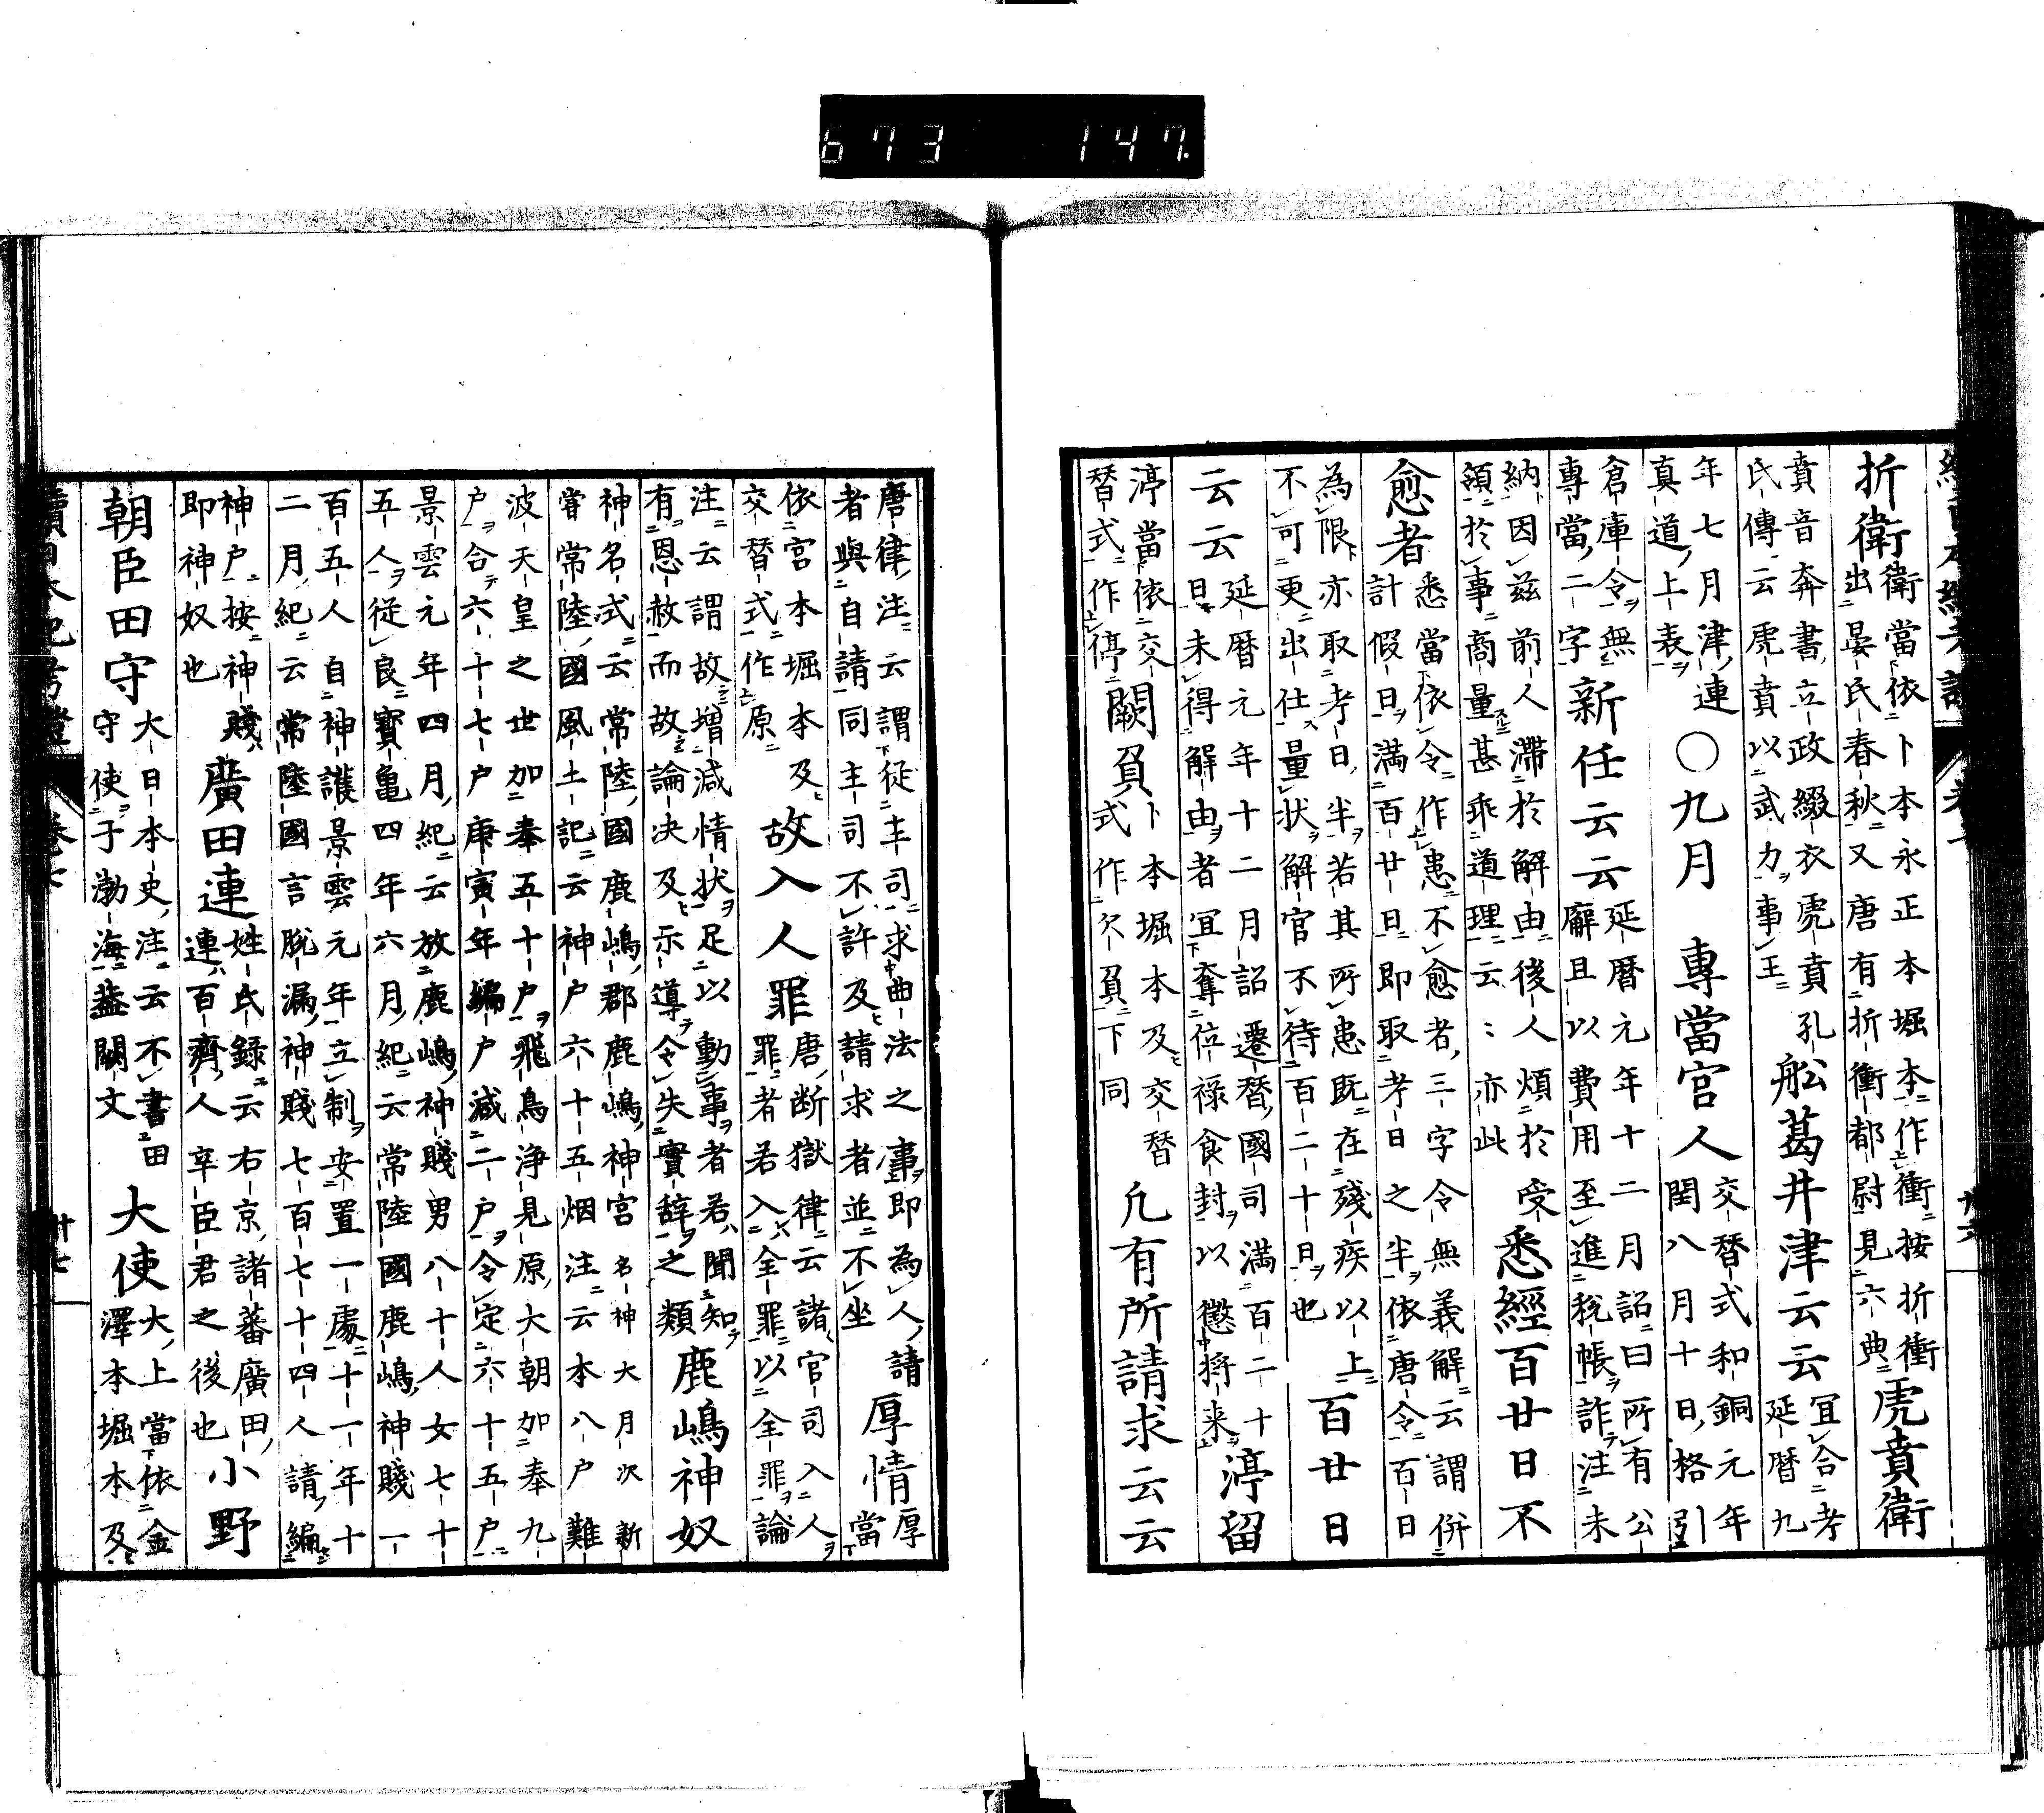 673 147.
折衛衛當依卜本永正本堀本作衝按折衝
出晏氏春秋又唐有折衝都尉見六典虎賁衛
賁音奔書立政綴衣虎賁孔
氏傳云虎賁以武力事王舩葛井津云云宜合考
延暦九
年七月津連
真道上表〇九月 專當官人交替式和銅元年
閏八月十日格引
倉庫令無
專當二字新任云云延暦元年十二月詔曰所有公
廨且以費用至進税帳詐注未
納因茲前人滯於解由後人煩於受
領於事商量甚乖道理云〻亦此悉經百廿日不
愈者悉當依令作患不愈者三字令無義解云謂併
計假日満百廿日即取考日之半依唐令百日
為限亦取考日半若其所患既在殘疾以上
不可更出仕量状解官不待百二十日也百廿日
云云延暦元年十二月詔遷替國司満百二十
日未得解由者宜奪位祿食封以懲將来渟留
渟當依交
替式作停闕負卜本堀本及交替
式作欠負下同凢有所請求云云
唐律注云謂従主司求曲法之事即為人請
者與自請同主司不許及請求者並不坐厚情厚
當
依宮本堀本及
交替式作原故入人罪唐断獄律云諸官司入人
罪者若入全罪以全罪論
注云謂故増減情状足以動事者若聞知
有恩赦而故論决及示導令失實辞之類鹿嶋神奴
神名式云常陸國鹿嶋郡鹿嶋神宮名神大月次新
甞常陸國風土記云神戸六十五烟注云本八戸難
波天皇之世加奉五十戸飛鳥浄見原大朝加奉九
戸合六十七戸庚寅年編戸減二戸令定六十五戸
景雲元年四月紀云放鹿嶋神賤男八十人女七十
五人従良寳亀四年六月紀云常陸國鹿嶋神賤一
百五人自神護景雲元年立制安置一處十一年十
二月紀云常陸國言脫漏神賤七百七十四人請編
神戸按神賤
即神奴也廣田連姓氏録云右京諸蕃廣田
連百齊人辛臣君之後也小野
朝臣田守大日本史注云不書田
守使于渤海葢闕文大使大上當依金
澤本堀本及
續日本紀考證 巻七 廿七